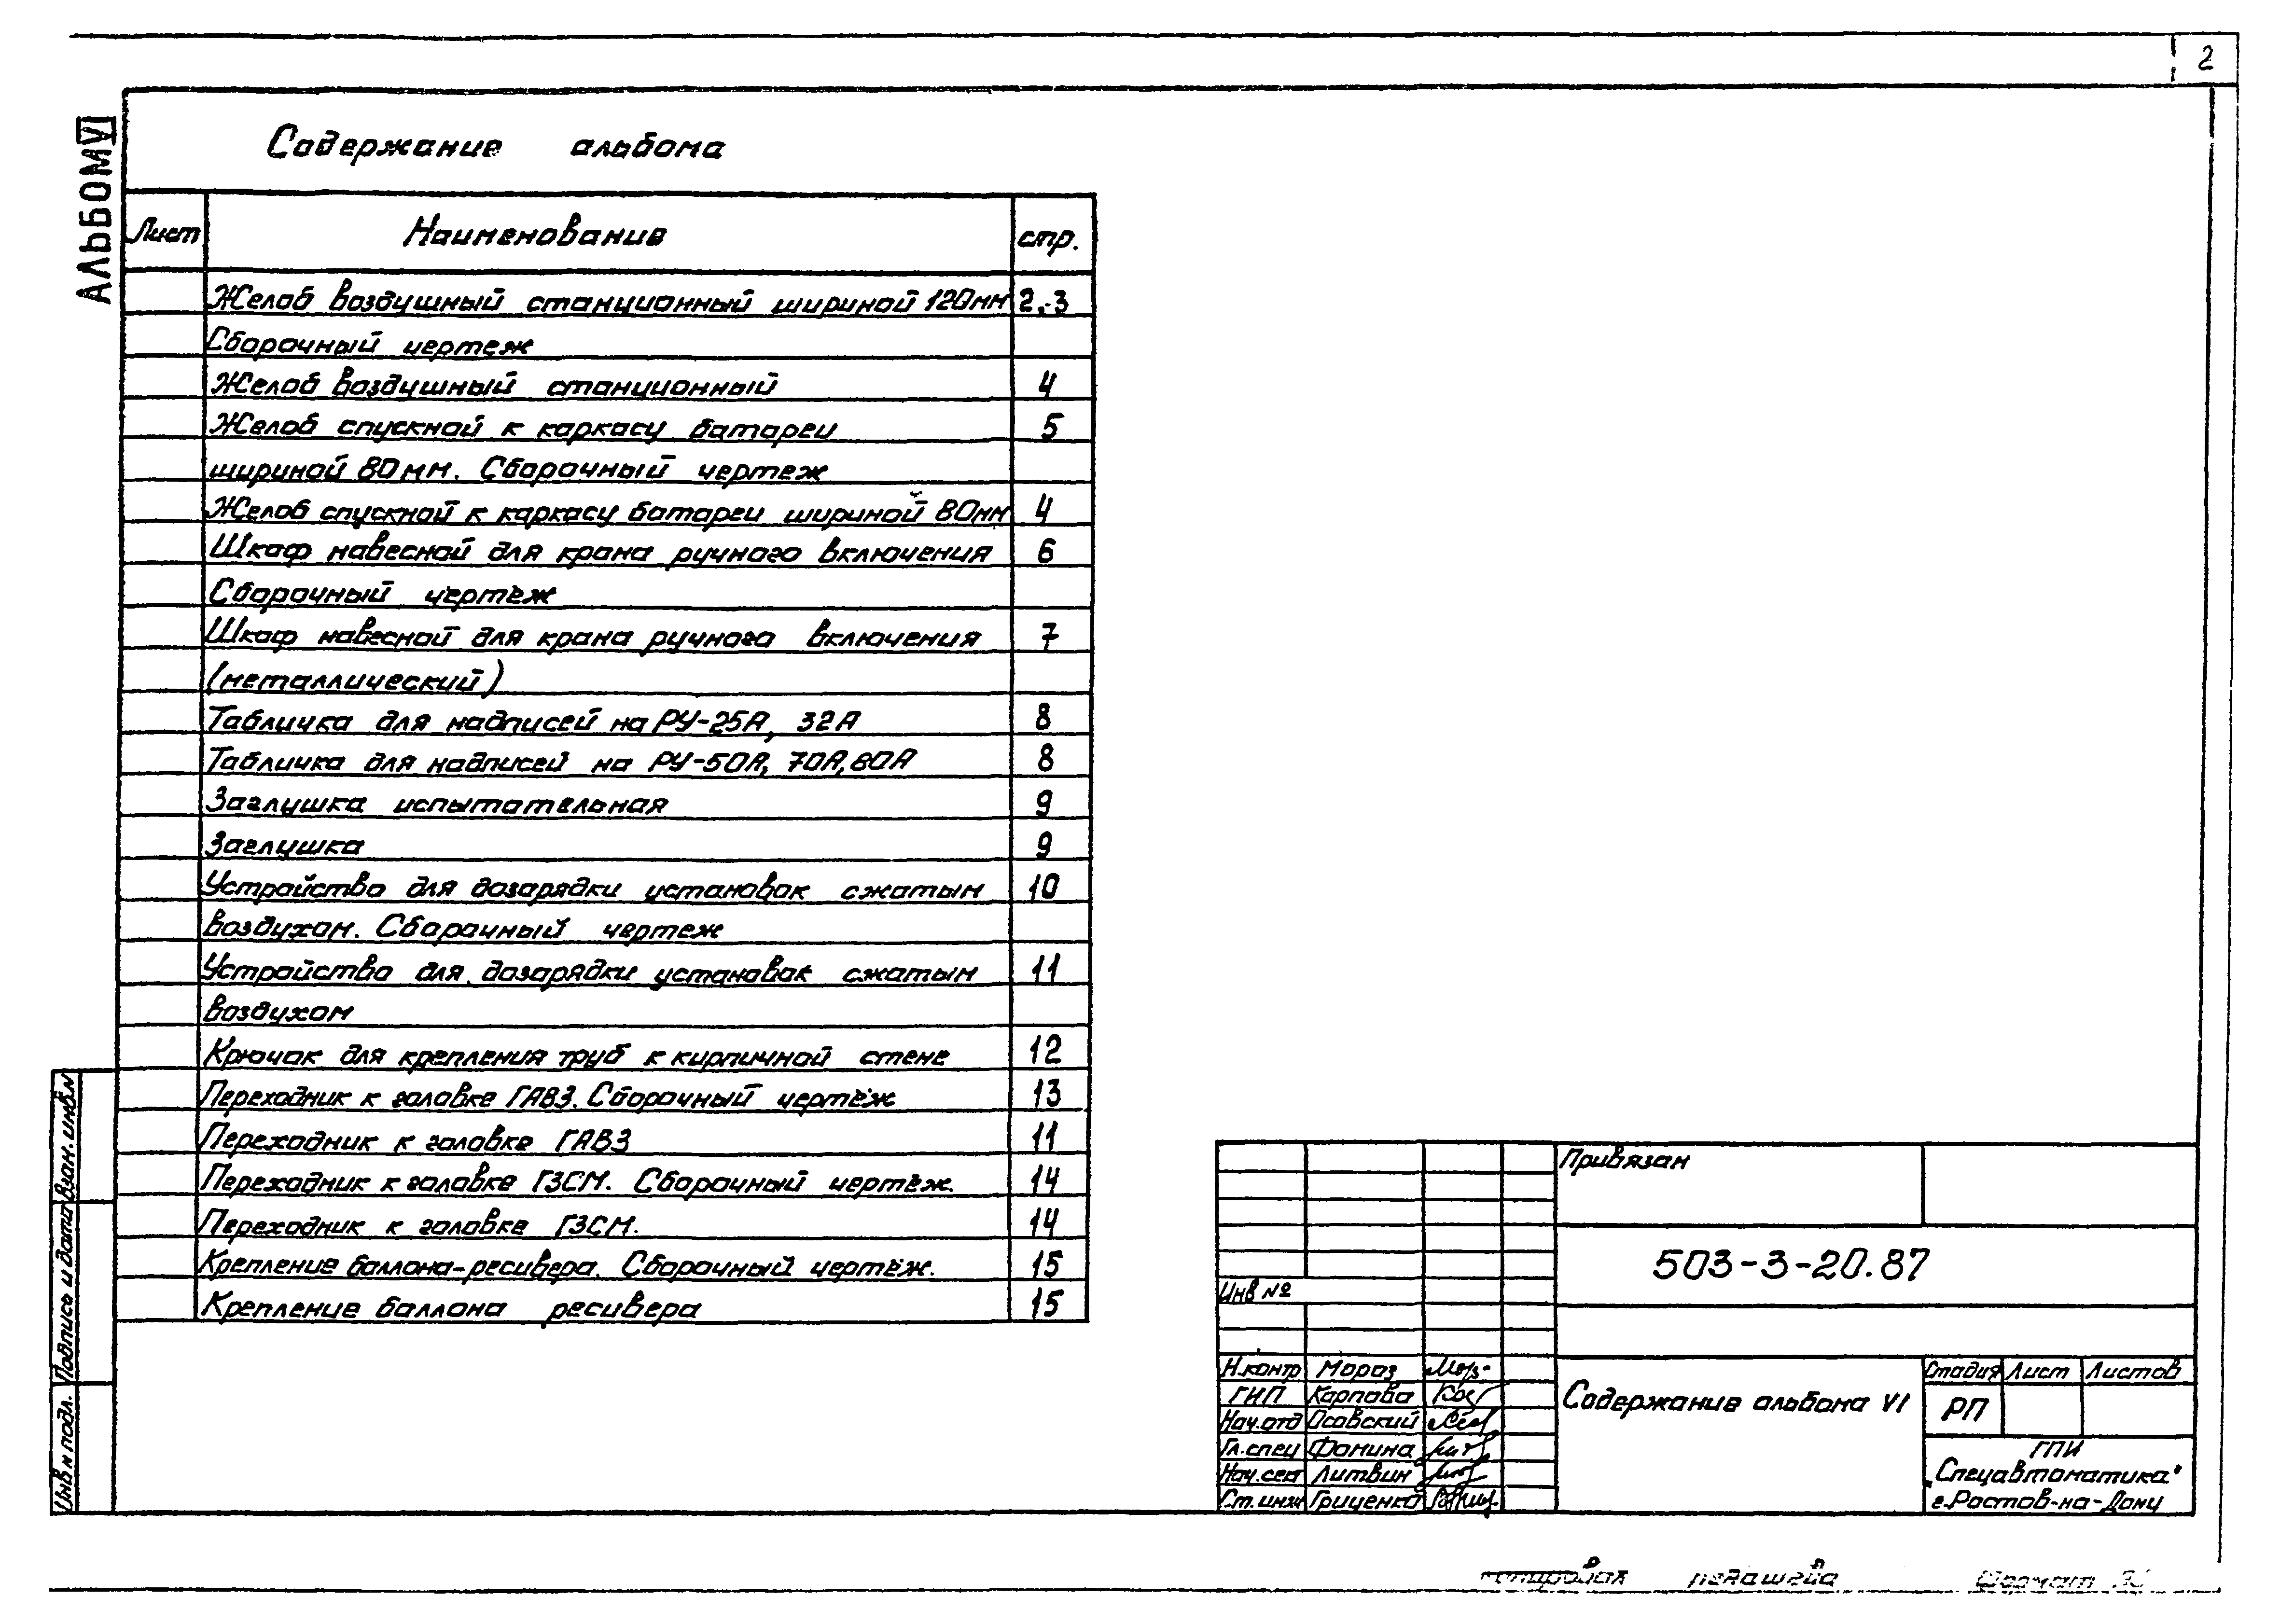 2
АЛЬБОМ VI
Содержание альбома
Лист Наименование стр.
Желоб воздушный станционный шириной 120мм 2-3
Сборочный чертеж
Желоб воздушный станционный 4
Желоб спускной к каркасу батареи 5
шириной 80мм. Сборочный чертеж
Желоб спускной к каркасу батареи шириной 80мм 4
Шкаф навесной для крана ручного включения 6
Сборочный чертёж
Шкаф навесной для крана ручного включения 7
(металлический)
Табличка для надписей на РУ-25А, 32А 8
Табличка для надписей на РУ-50А, 70А, 80А 8
Заглушка испытательная 9
Заглушка 9
Устройство для дозарядки установок сжатым 10
воздухом. Сборочный чертеж
Устройство для дозарядки установок сжатым 11
воздухом
Крючок для крепления труб к кирпичной стене 12
Переходник к головке ГАВЗ. Сборочный чертёж 13
Переходник к головке ГАВЗ 11
Переходник к головке ГЗСМ. Сборочный чертёж. 14
Переходник к головке ГЗСМ. 14
Крепление баллона-ресивера. Сборочный чертёж. 15
Крепление баллона ресивера 15
Взам. инв.N
Подпись и дата
Инв N подл.
Привязан
503-3-20.87
Инв №
Н.контр Мороз
ГИП Карпова
Нач.отд Осовский
Гл.спец Фомина
Нач.сек Литвин
Ст.инж Гриценко
Содержание альбома VI
Стадия Лист Листов
РП
ГПИ
"Спецавтоматика"
г.Ростов-на-Дону
копировал Формат